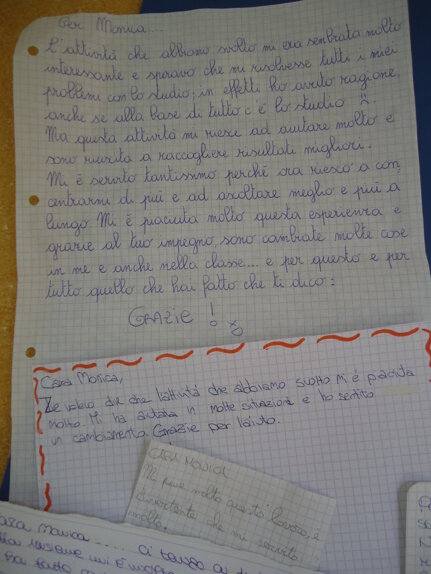 Per Monica....
L'attività che abbiamo svolto mi era sembrata molto
interessante e speravo che mi risolvesse tutti i miei
problemi con lo studio; in effetti ho avuto ragione,
anche se alla base di tutto c'è lo studio
Ma questa attività mi riesce ad aiutare molto e
sono riuscita a raccogliere risultati migliori.
Mi è servito tantissimo perchè ora riesco a con
centrarmi di più e ad ascoltare meglio e più a
lungo. Mi è piaciuta molto questa esperienza e
grazie al tuo impegno sono cambiate molte cose
in me e anche nella classe.... e per questo e per
tutto quello che hai fatto che ti dico:
GRAZIE!
Cara Monica,
volevo dire che l'attività che abbiamo svolto mi è piaciuta
molto. Mi ha aiutata in molte situazioni e ho sentito
un cambiamento. Grazie per l'aiuto.
CARA MONICA
Mi piace molto questo lavoro, è
divertente che mi servito
molto.
Cara Monica.... ci tengo a
insieme mi è
ha fatto